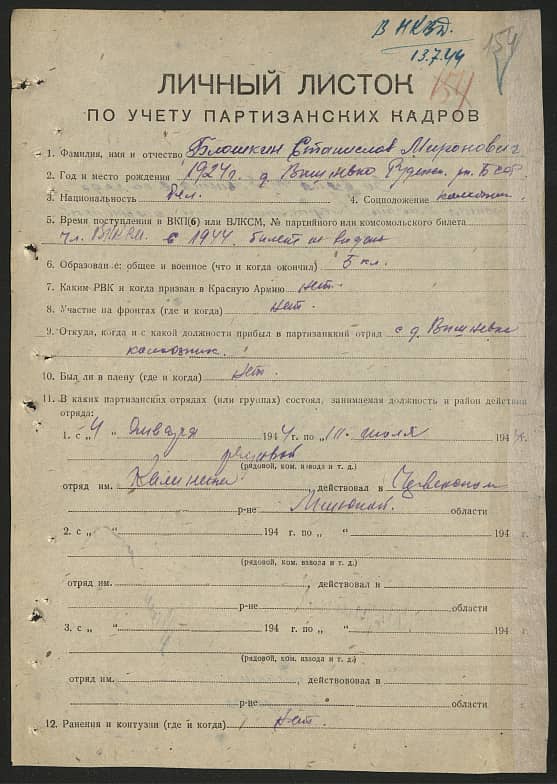 В НКВД.
13.7.44
154
154
ЛИЧНЫЙ ЛИСТОК
ПО УЧЕТУ ПАРТИЗАНСКИХ КАДРОВ
1. Фамилия, имя и отчество Блошкин Станислав Миронович
2. Год и место рождения 1924г. д. Вишневка Руденск. рн. БССР
3. Национальность бел. 4. Соцположение колхозник
5. Время поступления в ВКП(б) или ВЛКСМ, № партийного или комсомольского билета
чл. ВЛКСМ с 1944. билет не выдан
6. Образование: общее и военное (что и когда окончил) 5 кл.
7. Каким РВК и когда призван в Красную Армию нет.
8. Участие на фронтах (где и когда) нет.
9. Откуда, когда и с какой должности прибыл в партизанский отряд с д. Вишневка
колхозник.
10. Был ли в плену (где и когда) нет.
11. В каких партизанских отрядах (или группах) состоял, занимаемая должность и район действия
отряда:
1. с „4 января 1944г. по „ июля 1944г.
рядовой
(рядовой, ком. взвода и т. д.)
отряд им. Калинина действовал в Червенском
р-не Минской области
2. с „ “ 194 г. по „ “ 194 г.
(рядовой, ком. взвода и т. д.)
отряд им. , действовал в
р-не области
3. с „ “ 194 г. по „ “ 194 г.
(рядовой, ком. взвода и т. д.)
отряд им. , действововал в
р-не области
12. Ранения и контузии (где и когда) нет.